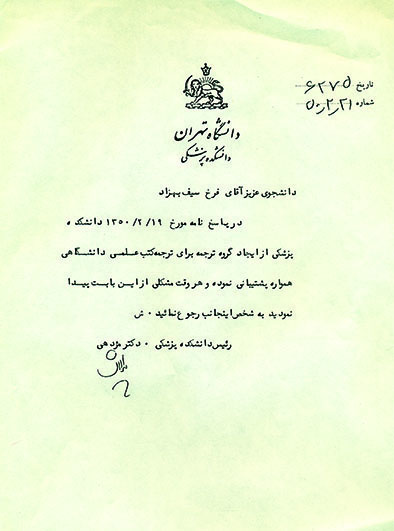 تاریخ ۶۲۷۵
شماره ۵۰٫۲٫۲۱
دانشگاه تهران
دانشکده پزشکی
دانشجوی عزیز آقای فرخ سیف بهزاد
در پاسخ نامه مورخ ۱۳۵۰/۲/۱۹ دانشکده
پزشکی از ایجاد گروه ترجمه برای ترجمه کتب علمی دانشگاهی
همواره پشتیبانی نموده و هر وقت مشکلی از این بابت پیدا
نمودید به شخص اینجانب رجوع نمائید ۰ ش
رئیس دانشکده پزشکی ۰ دکتر مژدهی